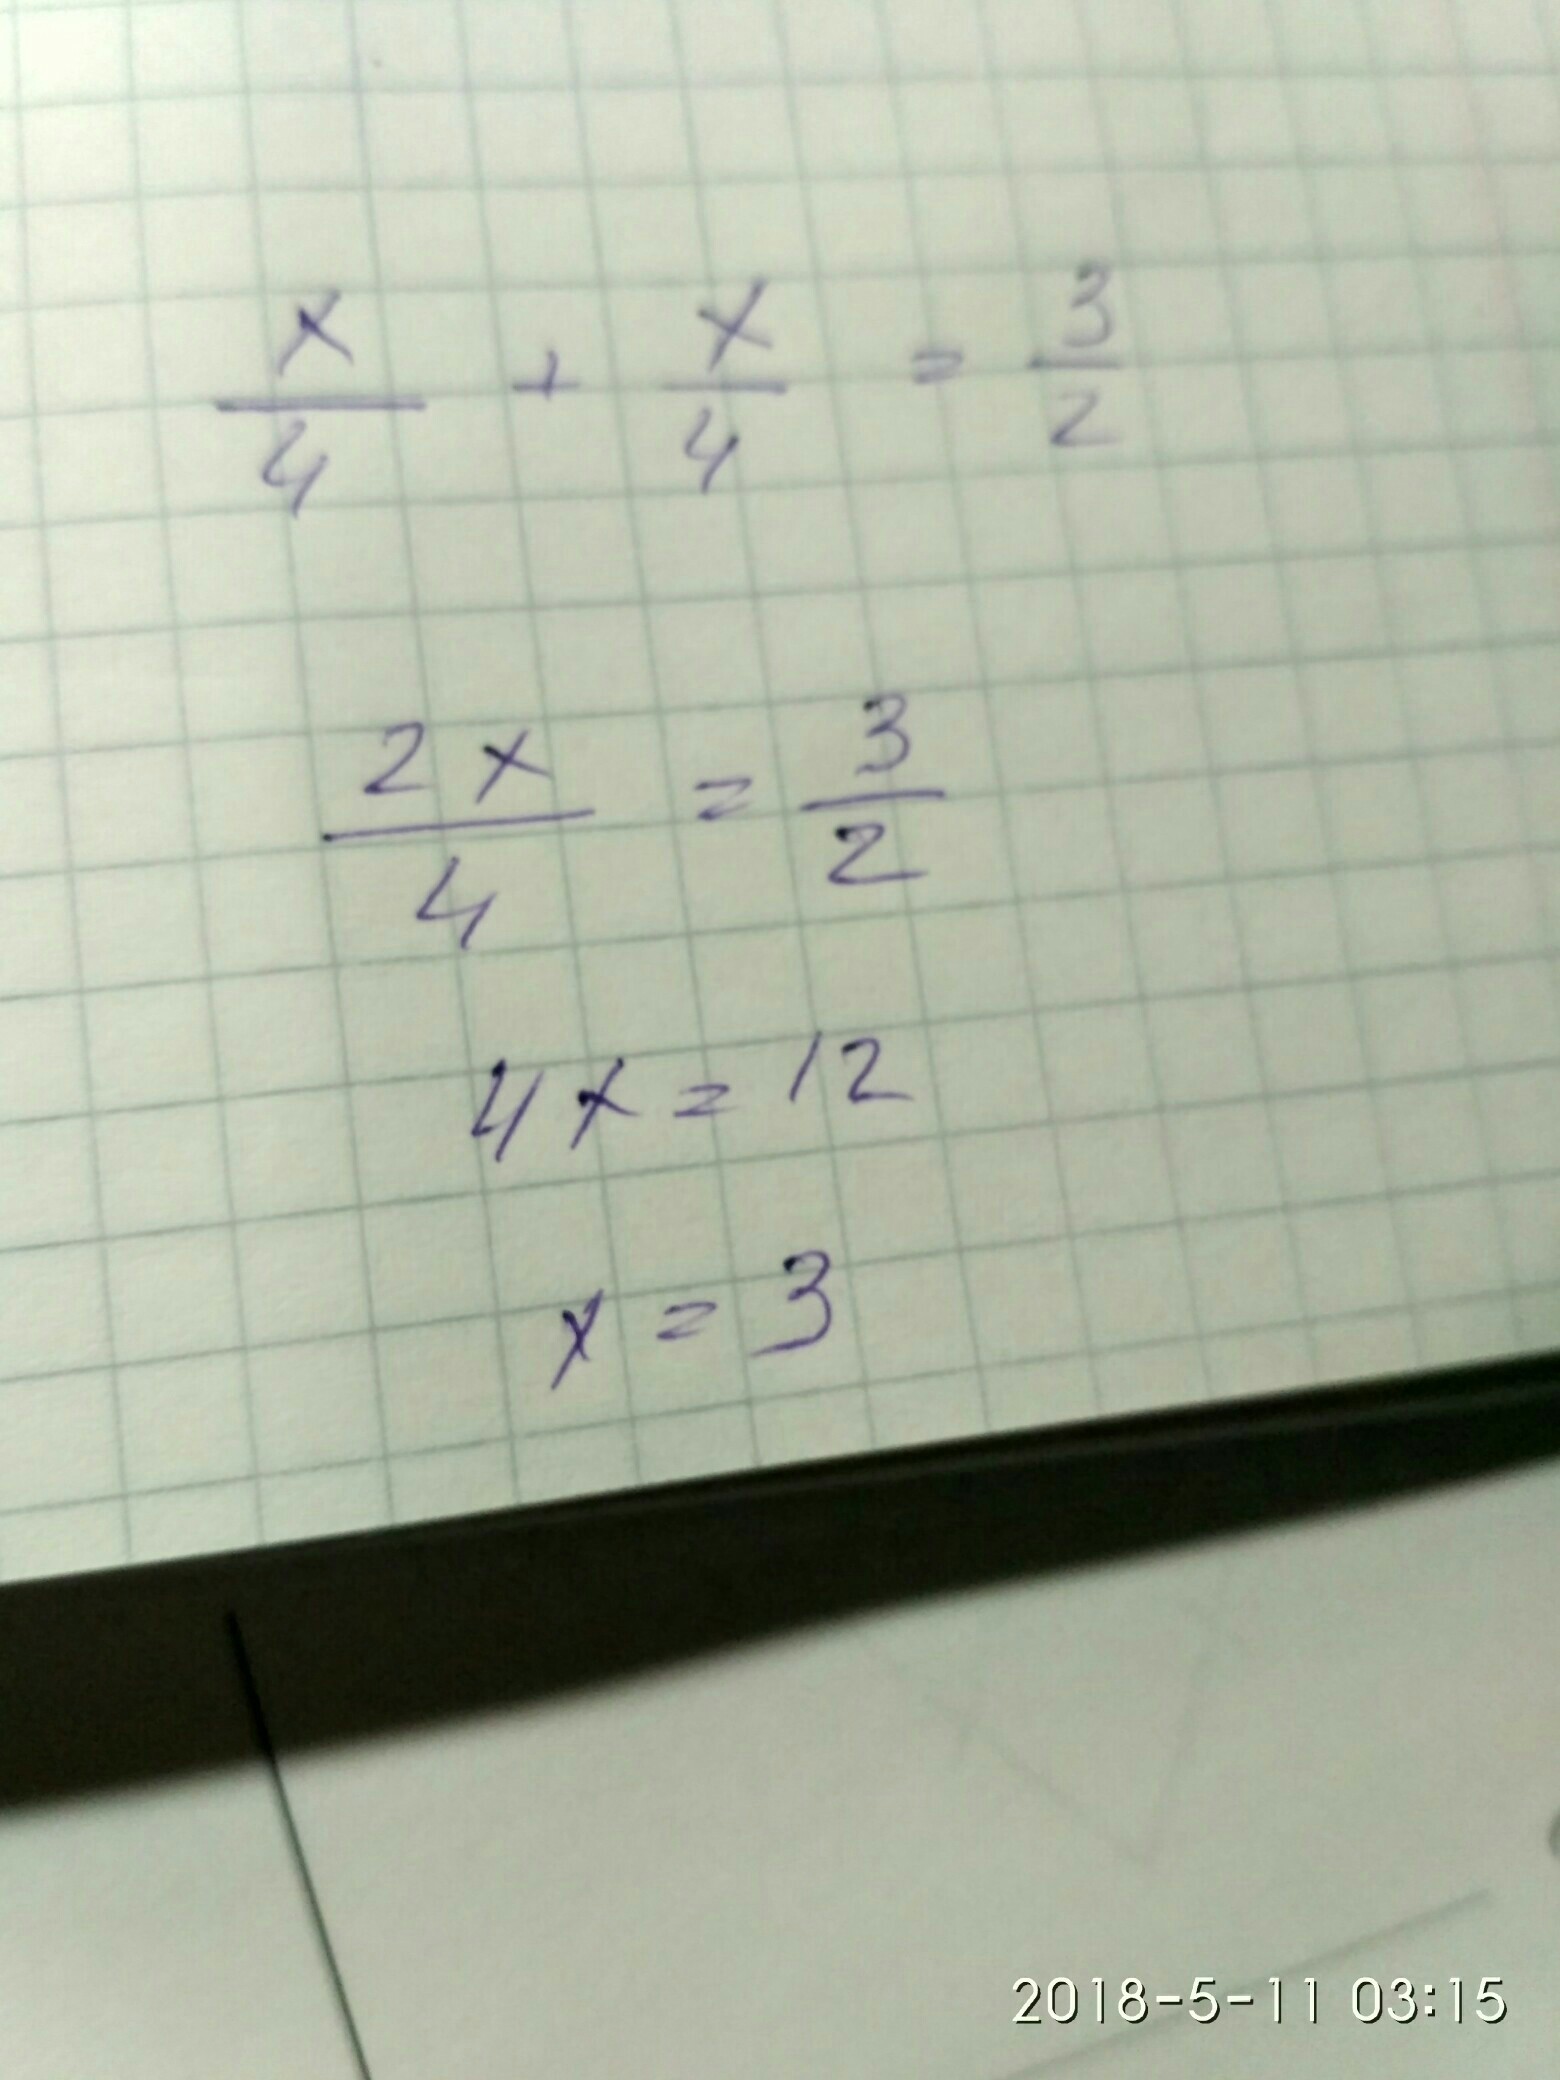 x/4 + x/4 = 3/2
2x/4 = 3/2
4x = 12
x = 3
2018-5-11 03:15